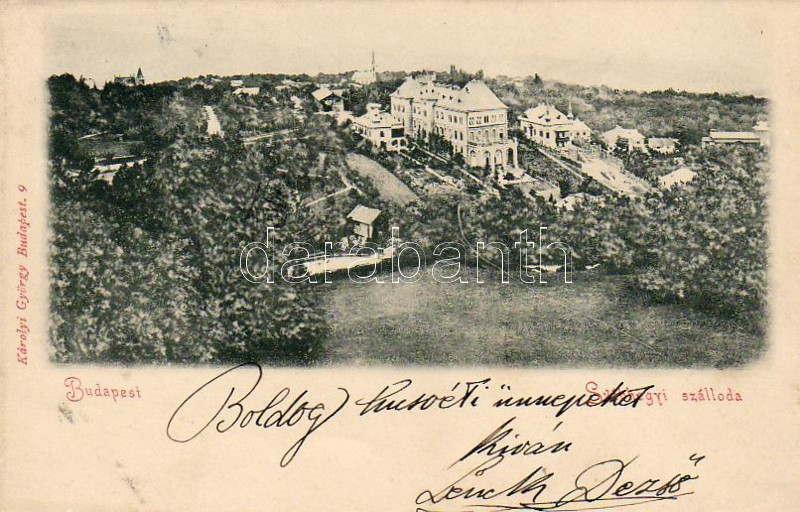 Károlyi György Budapest. 9
darabanth
Budapest
Svábhegyi szálloda
Boldog husvéti ünnepeket
Kiván
Dezső